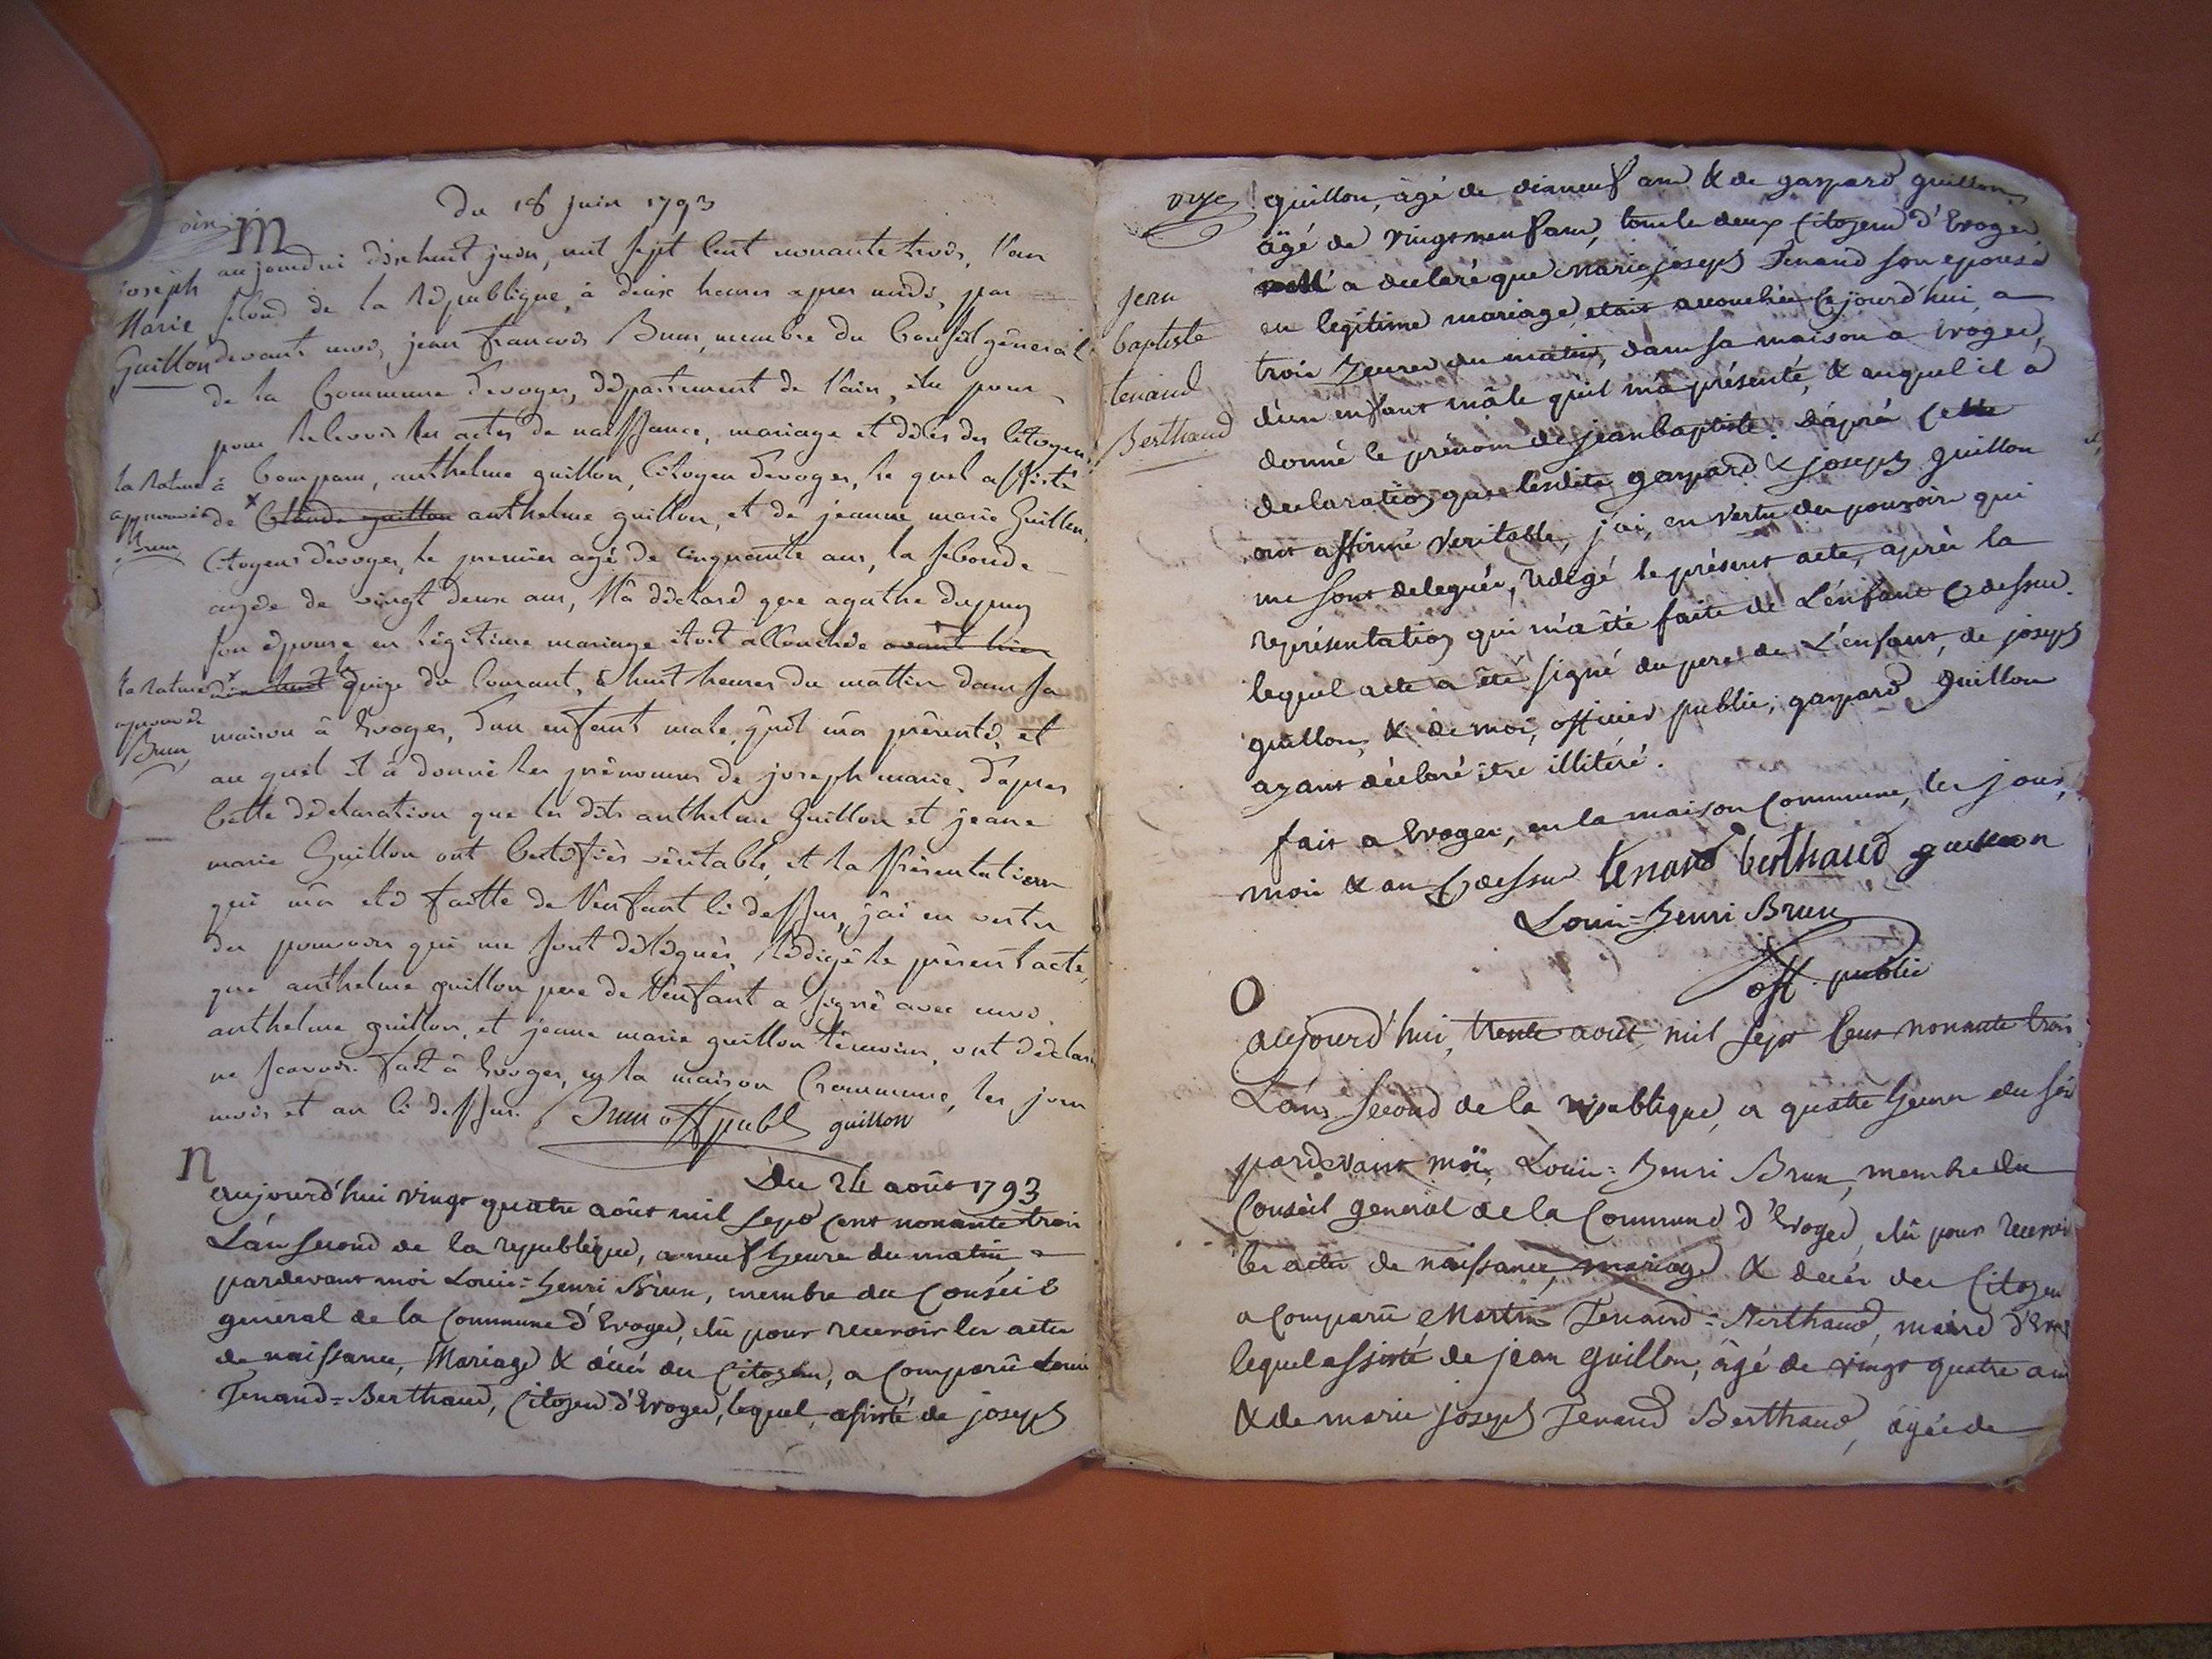 du 18 juin 1793
M
joseph
Marie
Guillon
aujourdui dixhuit juin, mil sept cent nonante trois, l'an
second de la République, à deux heures apres midi, par
devant moi, jean francois Brun, membre du Conseil général
de la Commune d'evoges, département de l'ain, élu pour
pour recevoir les actes de naissance, mariage et décès des citoyens
à Comparu, anthelme guillon, Citoyen d'evoges, le quel assisté
la rature
approuvée
Brun
de Claude guillon anthelme guillon, et de jeanne marie Guillon,
Citoyens d'evoges, le premier agé de cinquante ans, la seconde
agée de vingt deux ans, M'a déclaré que agathe dupuy
son épouse en légitime mariage étoit accouchée avant hier
la rature
approuvée
Brun
dix huit le quize du Courant, à huit heures du mattin dans sa
maison à Evoges, d'un enfant male, qu'il m'a présenté, et
au quel il à donné les prénoms de joseph marie. d'apres
Cette déclaration que les dits anthelme Guillon et jeane
marie Guillon ont Certifiés véritable, et la présentation
qui m'a eté faitte de l'enfant ci dessus, j'ai en vertu
des pouvoirs qui me sont délégués, rédigé le présent acte,
que anthelme guillon pere de l'enfant a signé avec moi.
anthelme guillon, et jeanne marie guillon témoins, ont déclaré
ne scavoir. fait à Evoges, en la maison Commune, les jour
mois et an ci dessus. Brun off publ guillon
Du 24 août 1793
N
aujourd'hui vingt quatre août mil sept cent nonante trois
L'an second de la republique, a neuf heure du matin
pardevant moi Louis=henri Brun, membre du Conséil
general de la Commune d'Evoges, élu pour recevoir les actes
de naissance, Mariage & décès des Citoyens, a Comparû Louis
Tenand=Berthaud, Citoyen d'Evoges, lequel, assisté de joseph
onze
jean
baptiste
tenand
Berthaud
guillon, âgé de dixneuf ans & de gaspard guillon
âgé de vingt neuf ans, tous le deux Citoyens d'Evoges
m'a declaré que marie joseph Tenand son epouse
en legitime mariage, etait accouchée Cejourd'hui a
trois heures du matin, dans sa maison a evoges,
d'un enfant mâle qu'il m'a présenté, & auquel il a
donné le prénom de jean baptiste. D'après Cette
declaration que lesdits gaspard & joseph guillon
ont affirmé veritable, j'ai, en vertu des pouvoirs qui
me sont delegués, redigé le présent acte, après la
représentation qui m'a été faite de L'enfant Cydessus.
lequel acte a été signé du pere de L'enfant, de joseph
guillon, & de moi, officier public, gaspard guillon
ayant déclaré être illitéré.
fait a Evoges, en la maison Commune, les jour,
mois & an Cydessus tenand berthaud guillon
Louis=henri Brun
off. public
O
aujourd'hui, trente aout mil sept Cent nonante trois
L'an Second de la republique, a quatre heures du soir
pardevant moi, Louis=henri Brun, membre du
Conseil general de la Commune d'Evoges, élû pour recevoir
les actes de naissance, mariage & decès des Citoyens
a Comparû Martin Tenand=Berthaud, maire d'Evoges
lequel assisté de jean guillon, âgé de vingt quatre ans
& de marie joseph Tenand Berthaud, âgée de